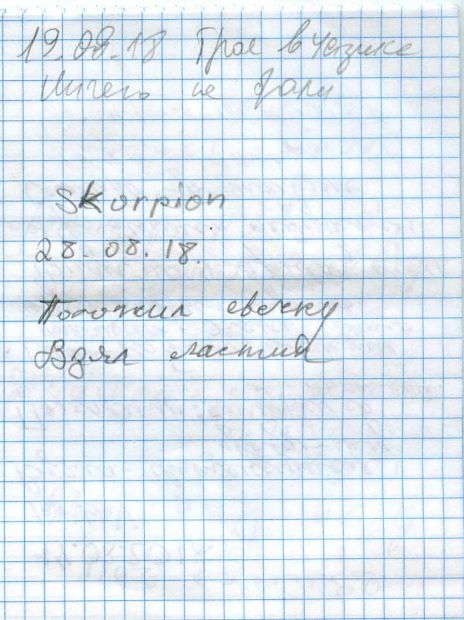 19.08.18 Трое в
Ничего не брали
Skorpion
28.08.18.
Положил свечку
Взял ластик